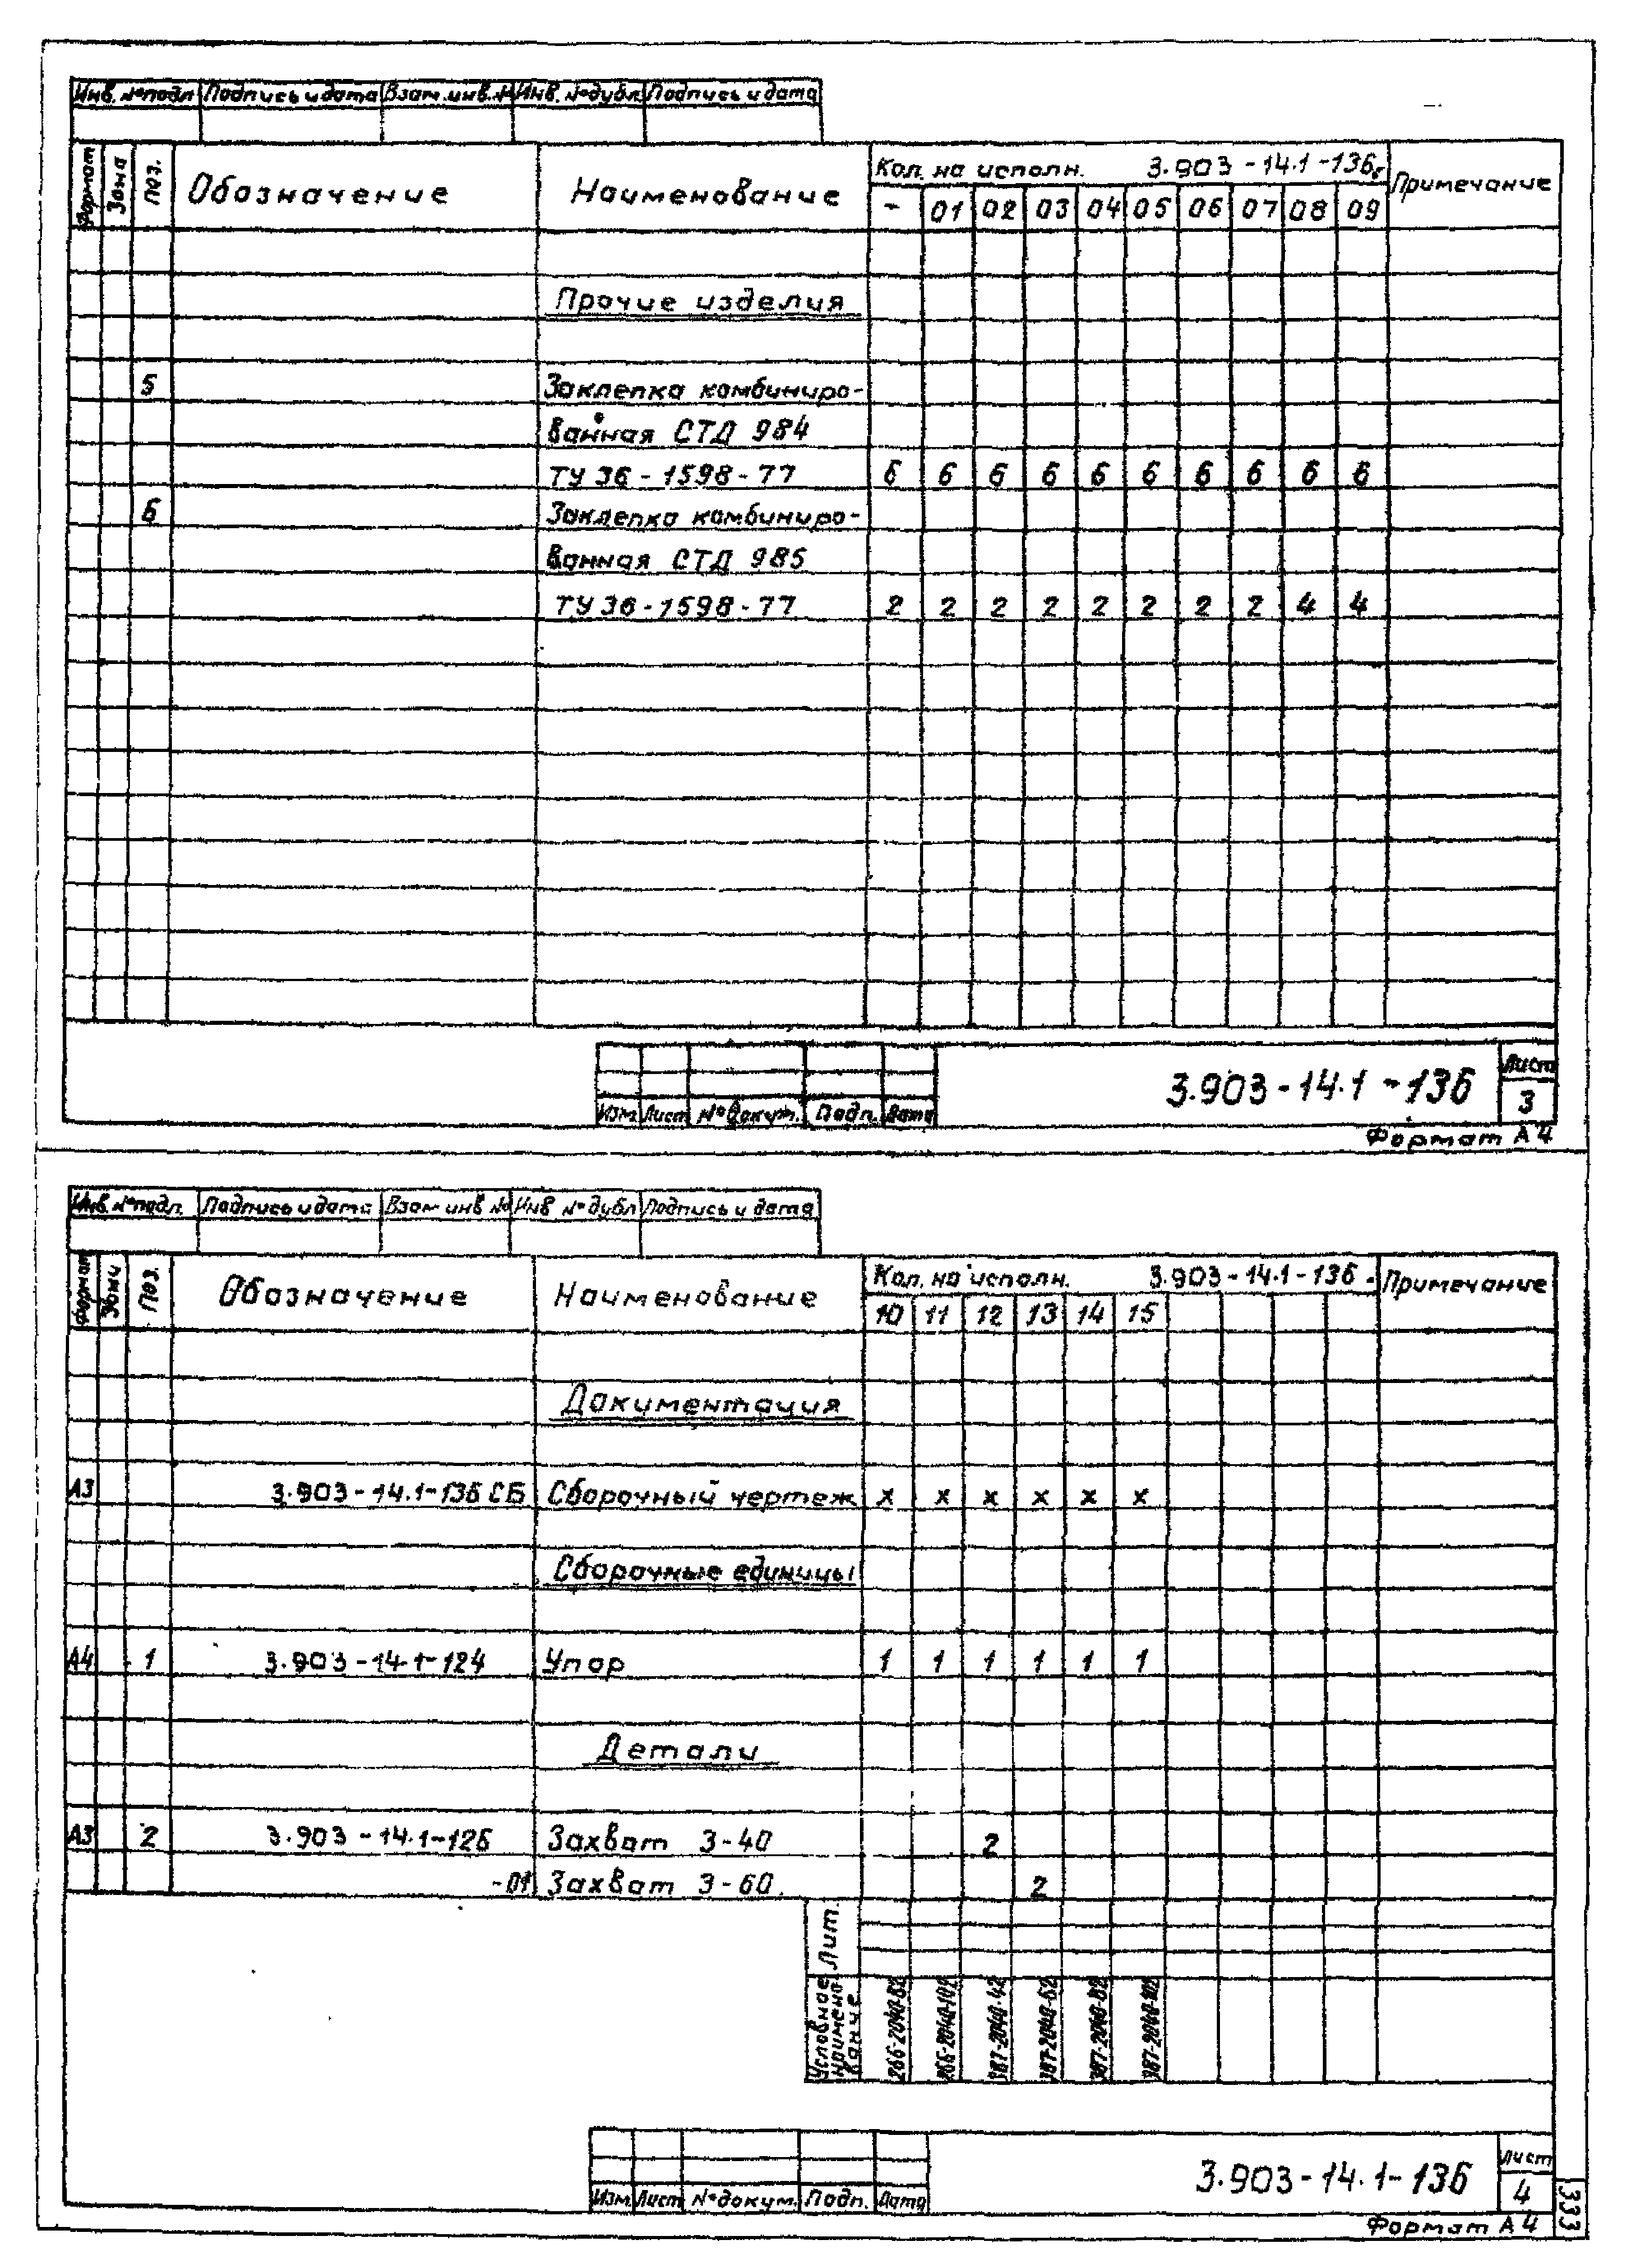 Инв. № подл Подпись и дата Взам. инв. № Инв. № дубл. Подпись и дата
Формат Зона Поз. Обозначение Наименование Кол. на исполн. 3.903-14.1-136 Примечание
- 01 02 03 04 05 06 07 08 09
Прочие изделия
5 Заклепка комбиниро-
ванная СТД 984
ТУ 36-1598-77 6 6 6 6 6 6 6 6 6 6
6 Заклепка комбиниро-
ванная СТД 985
ТУ 36-1598-77 2 2 2 2 2 2 2 2 4 4
3.903-14.1-136 Лист
3
Изм. Лист № докум. Подп. Дата
Формат А4
Инв. № подл. Подпись и дата Взам инв № Инв № дубл Подпись и дата
Формат Зона Поз. Обозначение Наименование Кол. на исполн. 3.903-14.1-136 - Примечание
10 11 12 13 14 15
Документация
А3 3.903-14.1-136 СБ Сборочный чертеж х х х х х х
Сборочные единицы
А4 1 3.903-14.1-124 Упор 1 1 1 1 1 1
Детали
А3 2 3.903-14.1-126 Захват 3-40 2
-01 Захват 3-60 2
Лит.
Условное наименование 266-2040-82 266-2040-102 387-2040-42 387-2040-62 387-2040-82 387-2040-102
3.903-14.1-136 Лист
4
Изм Лист № докум. Подп. Дата
Формат А4
333